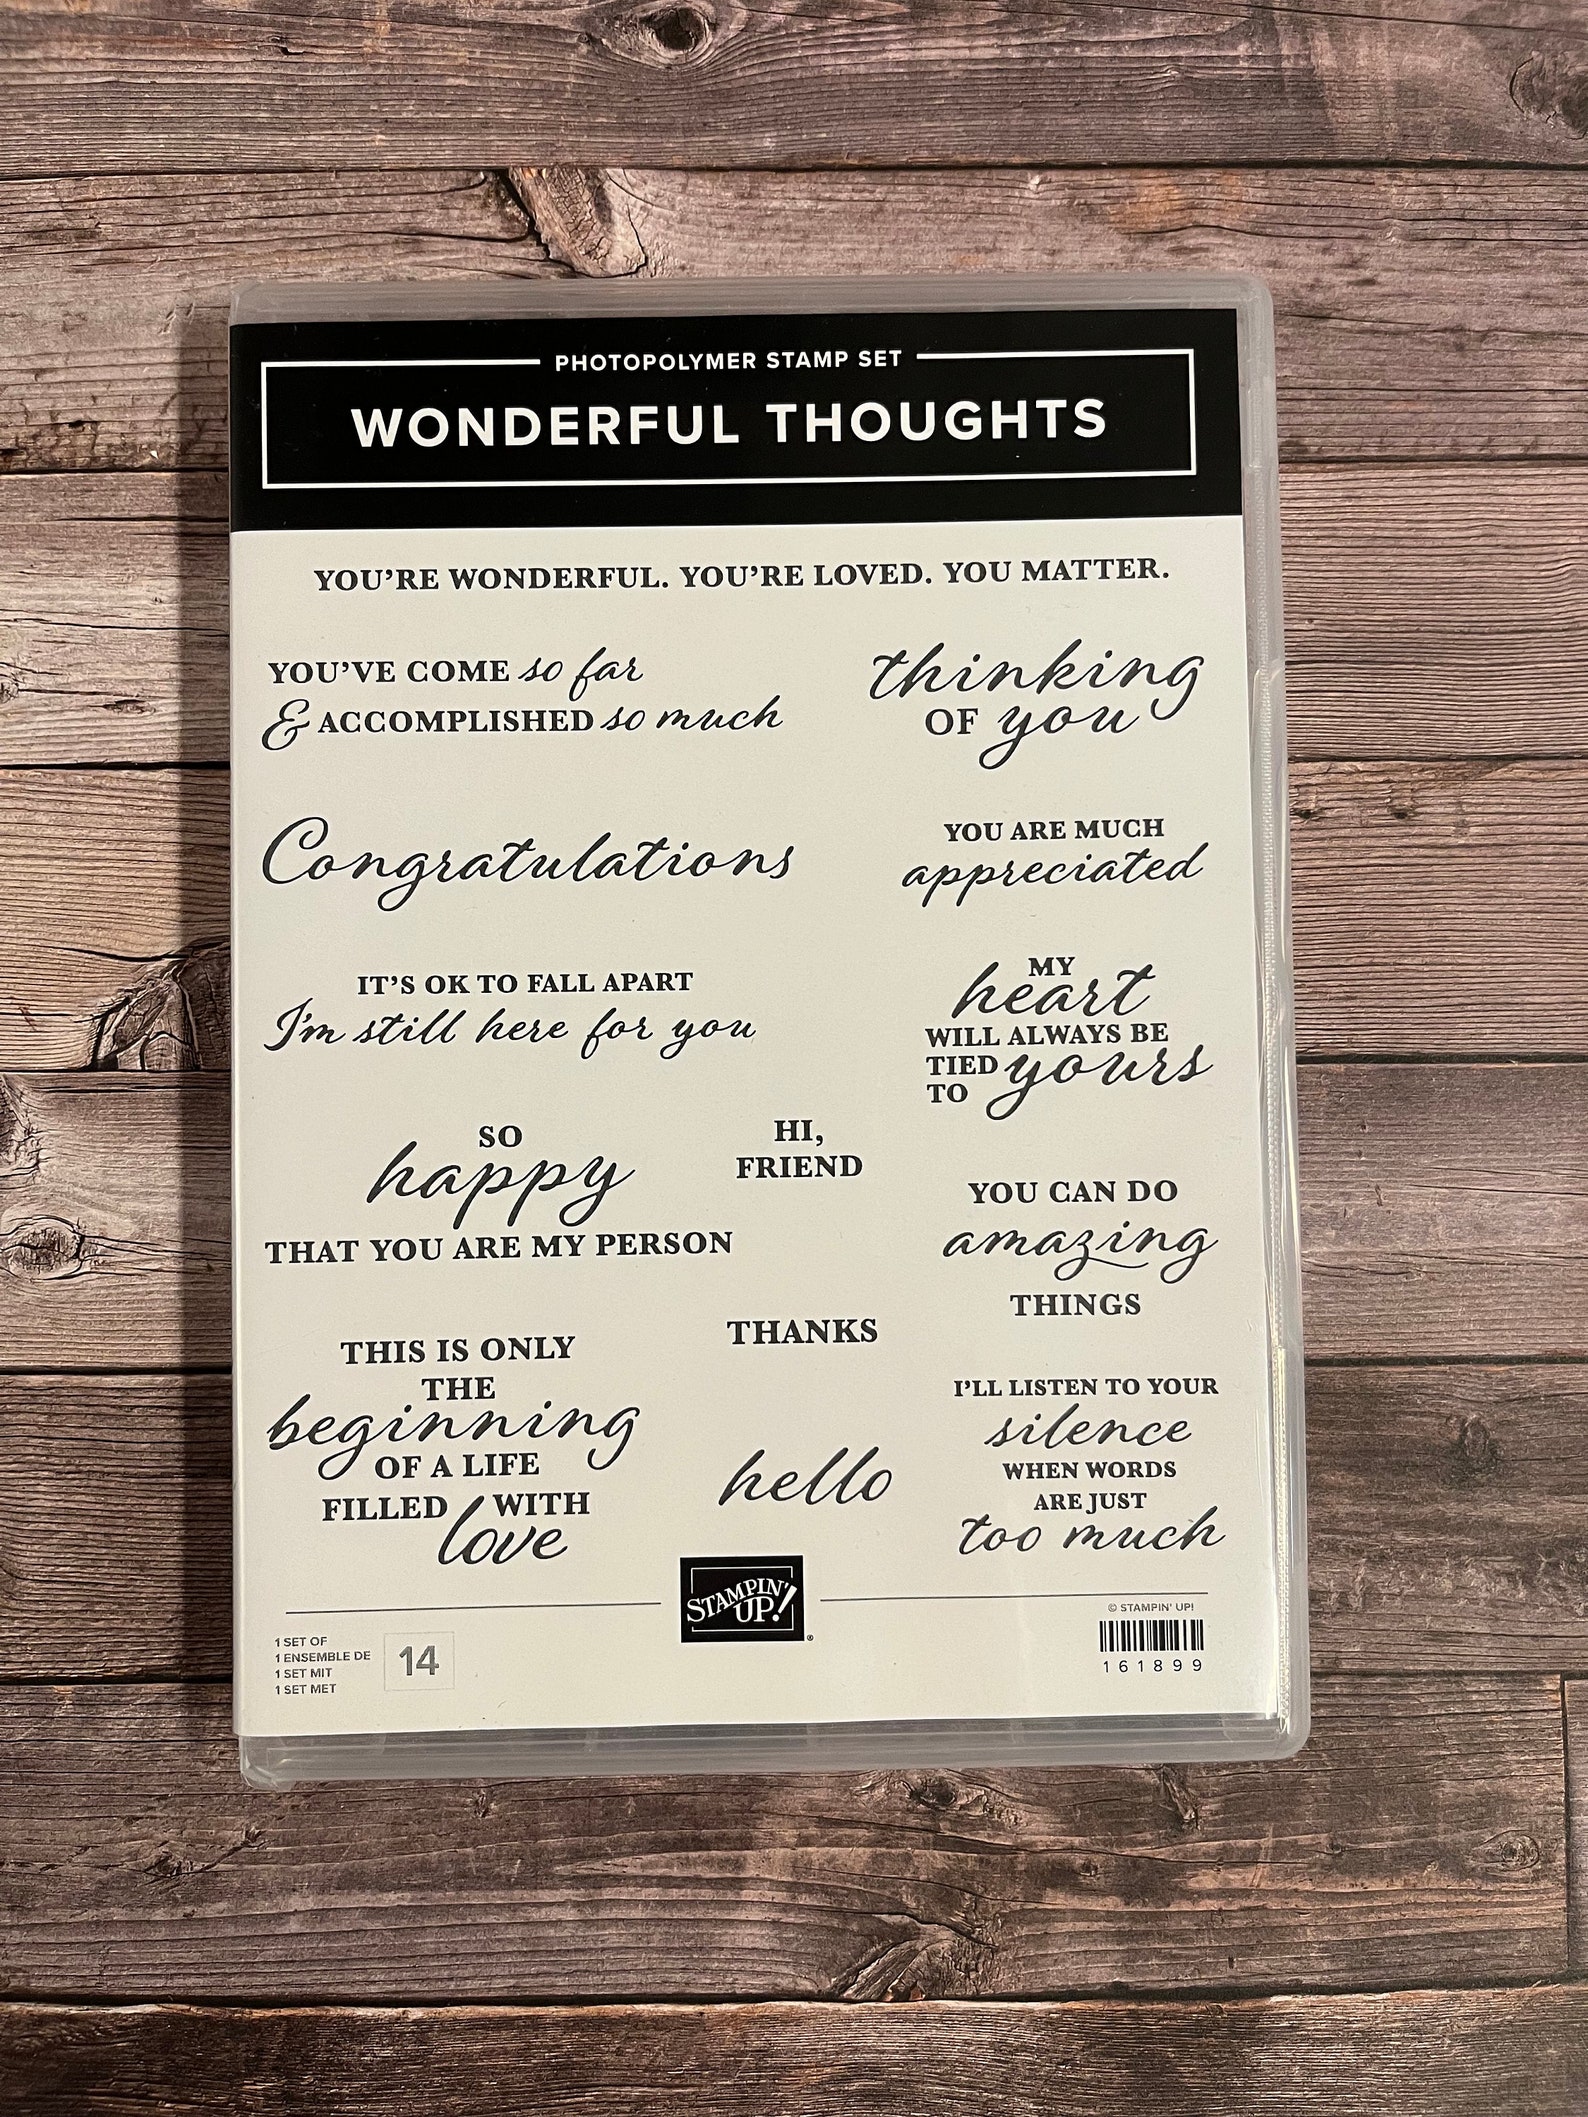 PHOTOPOLYMER STAMP SET
WONDERFUL THOUGHTS
YOU'RE WONDERFUL. YOU'RE LOVED. YOU MATTER.
YOU'VE COME so far
& ACCOMPLISHED so much
thinking
OF you
Congratulations
YOU ARE MUCH
appreciated
IT'S OK TO FALL APART
I'm still here for you
MY
heart
WILL ALWAYS BE
TIED yours
TO
SO
happy
THAT YOU ARE MY PERSON
HI,
FRIEND
YOU CAN DO
amazing
THINGS
THIS IS ONLY
THE
beginning
OF A LIFE
FILLED WITH
love
THANKS
hello
I'LL LISTEN TO YOUR
silence
WHEN WORDS
ARE JUST
too much
STAMPIN'
UP!
®
1 SET OF
1 ENSEMBLE DE
1 SET MIT
1 SET MET
14
© STAMPIN' UP!
161899